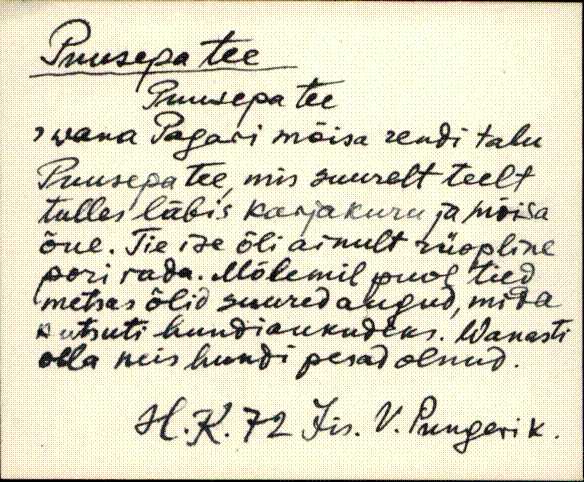 Puusepa tee
Puusepa tee
, wana Pagari mõisa rendi talu
Puusepa tee, mis suurelt teelt
tulles läbis karjakuru ja mõisa
õue. Tie ise õli ainult rüopline
pori rada. Mõlemil puol tied
metsas õlid suured augud, mida
kutsuti hundiaukudeks. Wanasti
olla neis hundi pesad olnud.
H.K. 72 Jis. V. Pungerik.